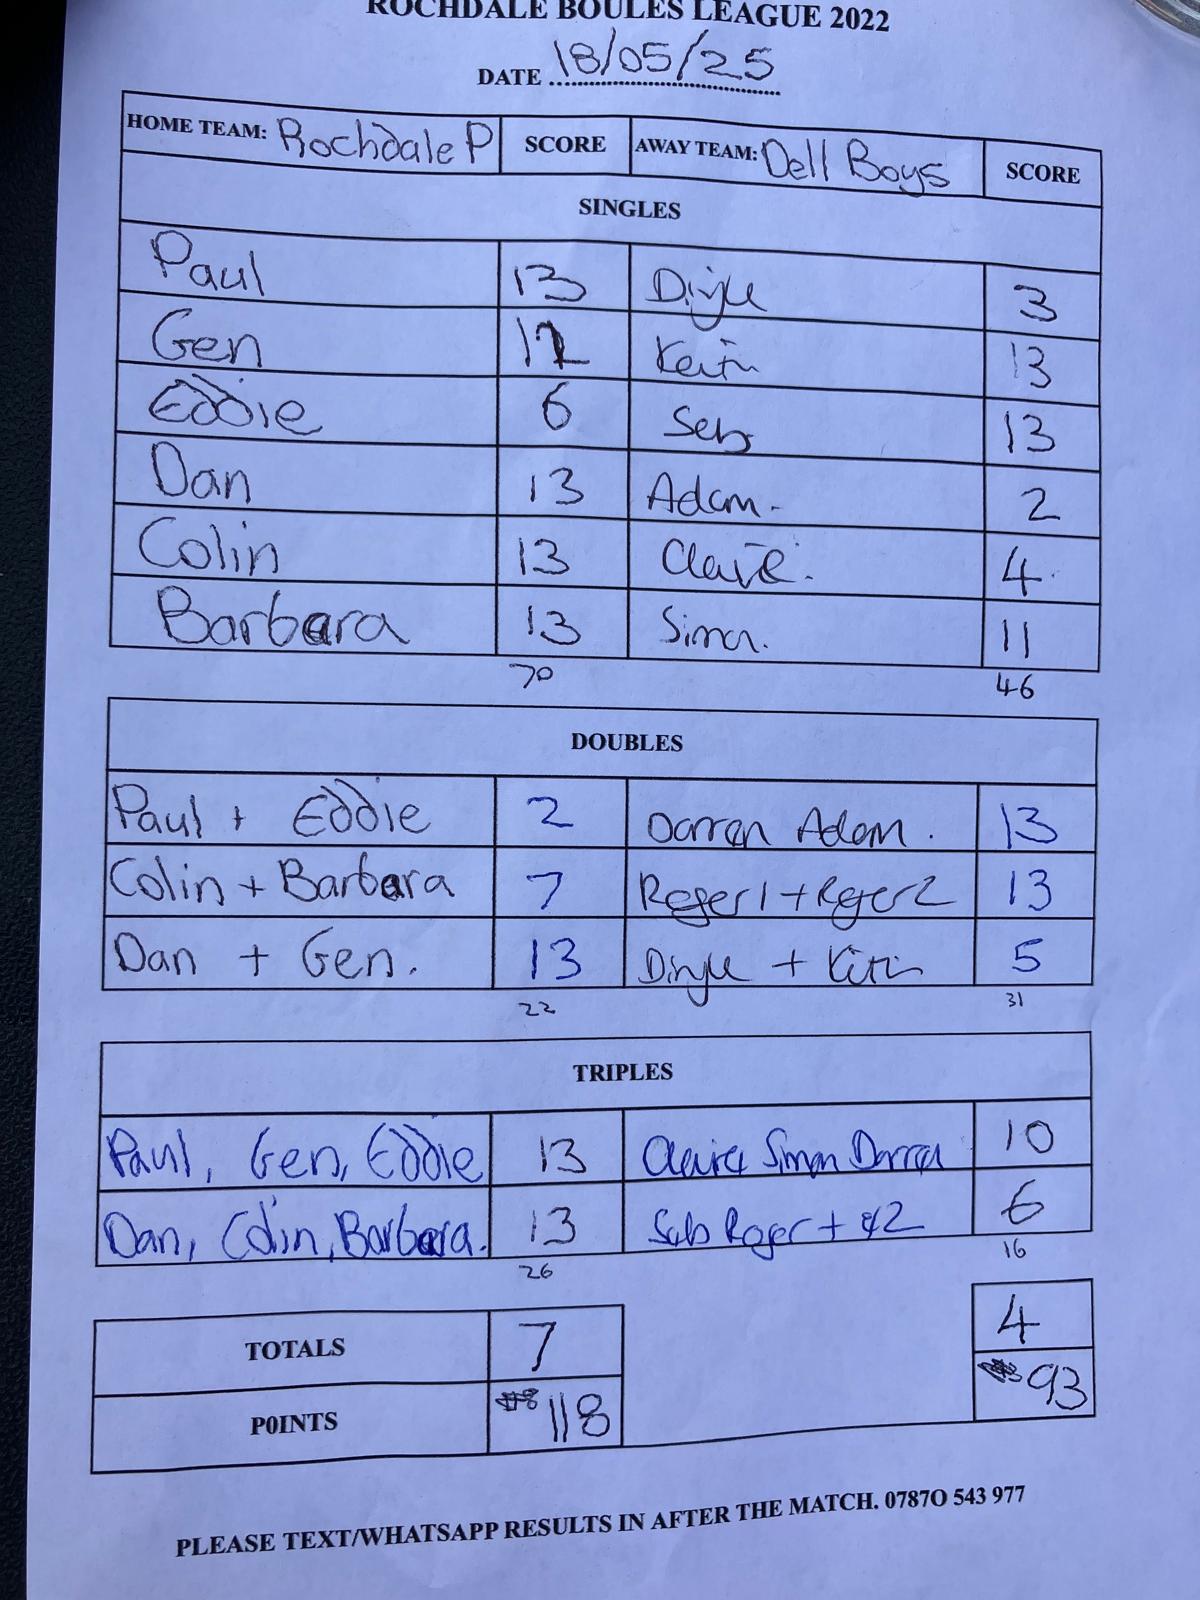 ROCHDALE BOULES LEAGUE 2022
DATE 18/05/25
HOME TEAM: Rochdale P SCORE AWAY TEAM: Dell Boys SCORE
SINGLES
Paul 13 3
Gen 12 Keith 13
Eddie 6 Seb 13
Dan 13 Adam. 2
Colin 13 Claire. 4
Barbara 13 Simon. 11
70 46
DOUBLES
Paul + Eddie 2 Darren Adam. 13
Colin + Barbara 7 Roger1 + Roger2 13
Dan + Gen. 13 + 5
22 31
TRIPLES
Paul, Gen, Eddie 13 Simon Darren 10
Dan, Colin, Barbara. 13 Seb Roger + 6
26 16
TOTALS 7 4
P0INTS 118 93
PLEASE TEXT/WHATSAPP RESULTS IN AFTER THE MATCH. 0787O 543 977